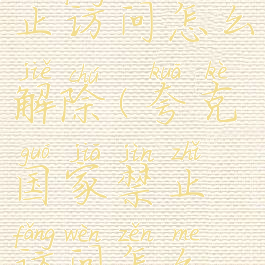 止访问怎么
jiě chú kuā kè
解除(夸克
guó jiā jìn zhǐ
国家禁止
fǎng wèn zěn me
访问怎么